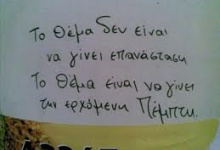 Το Θέμα δεν είναι
να γίνει επανάσταση
Το Θέμα είναι να γίνει
την ερχόμενη Πέμπτη.